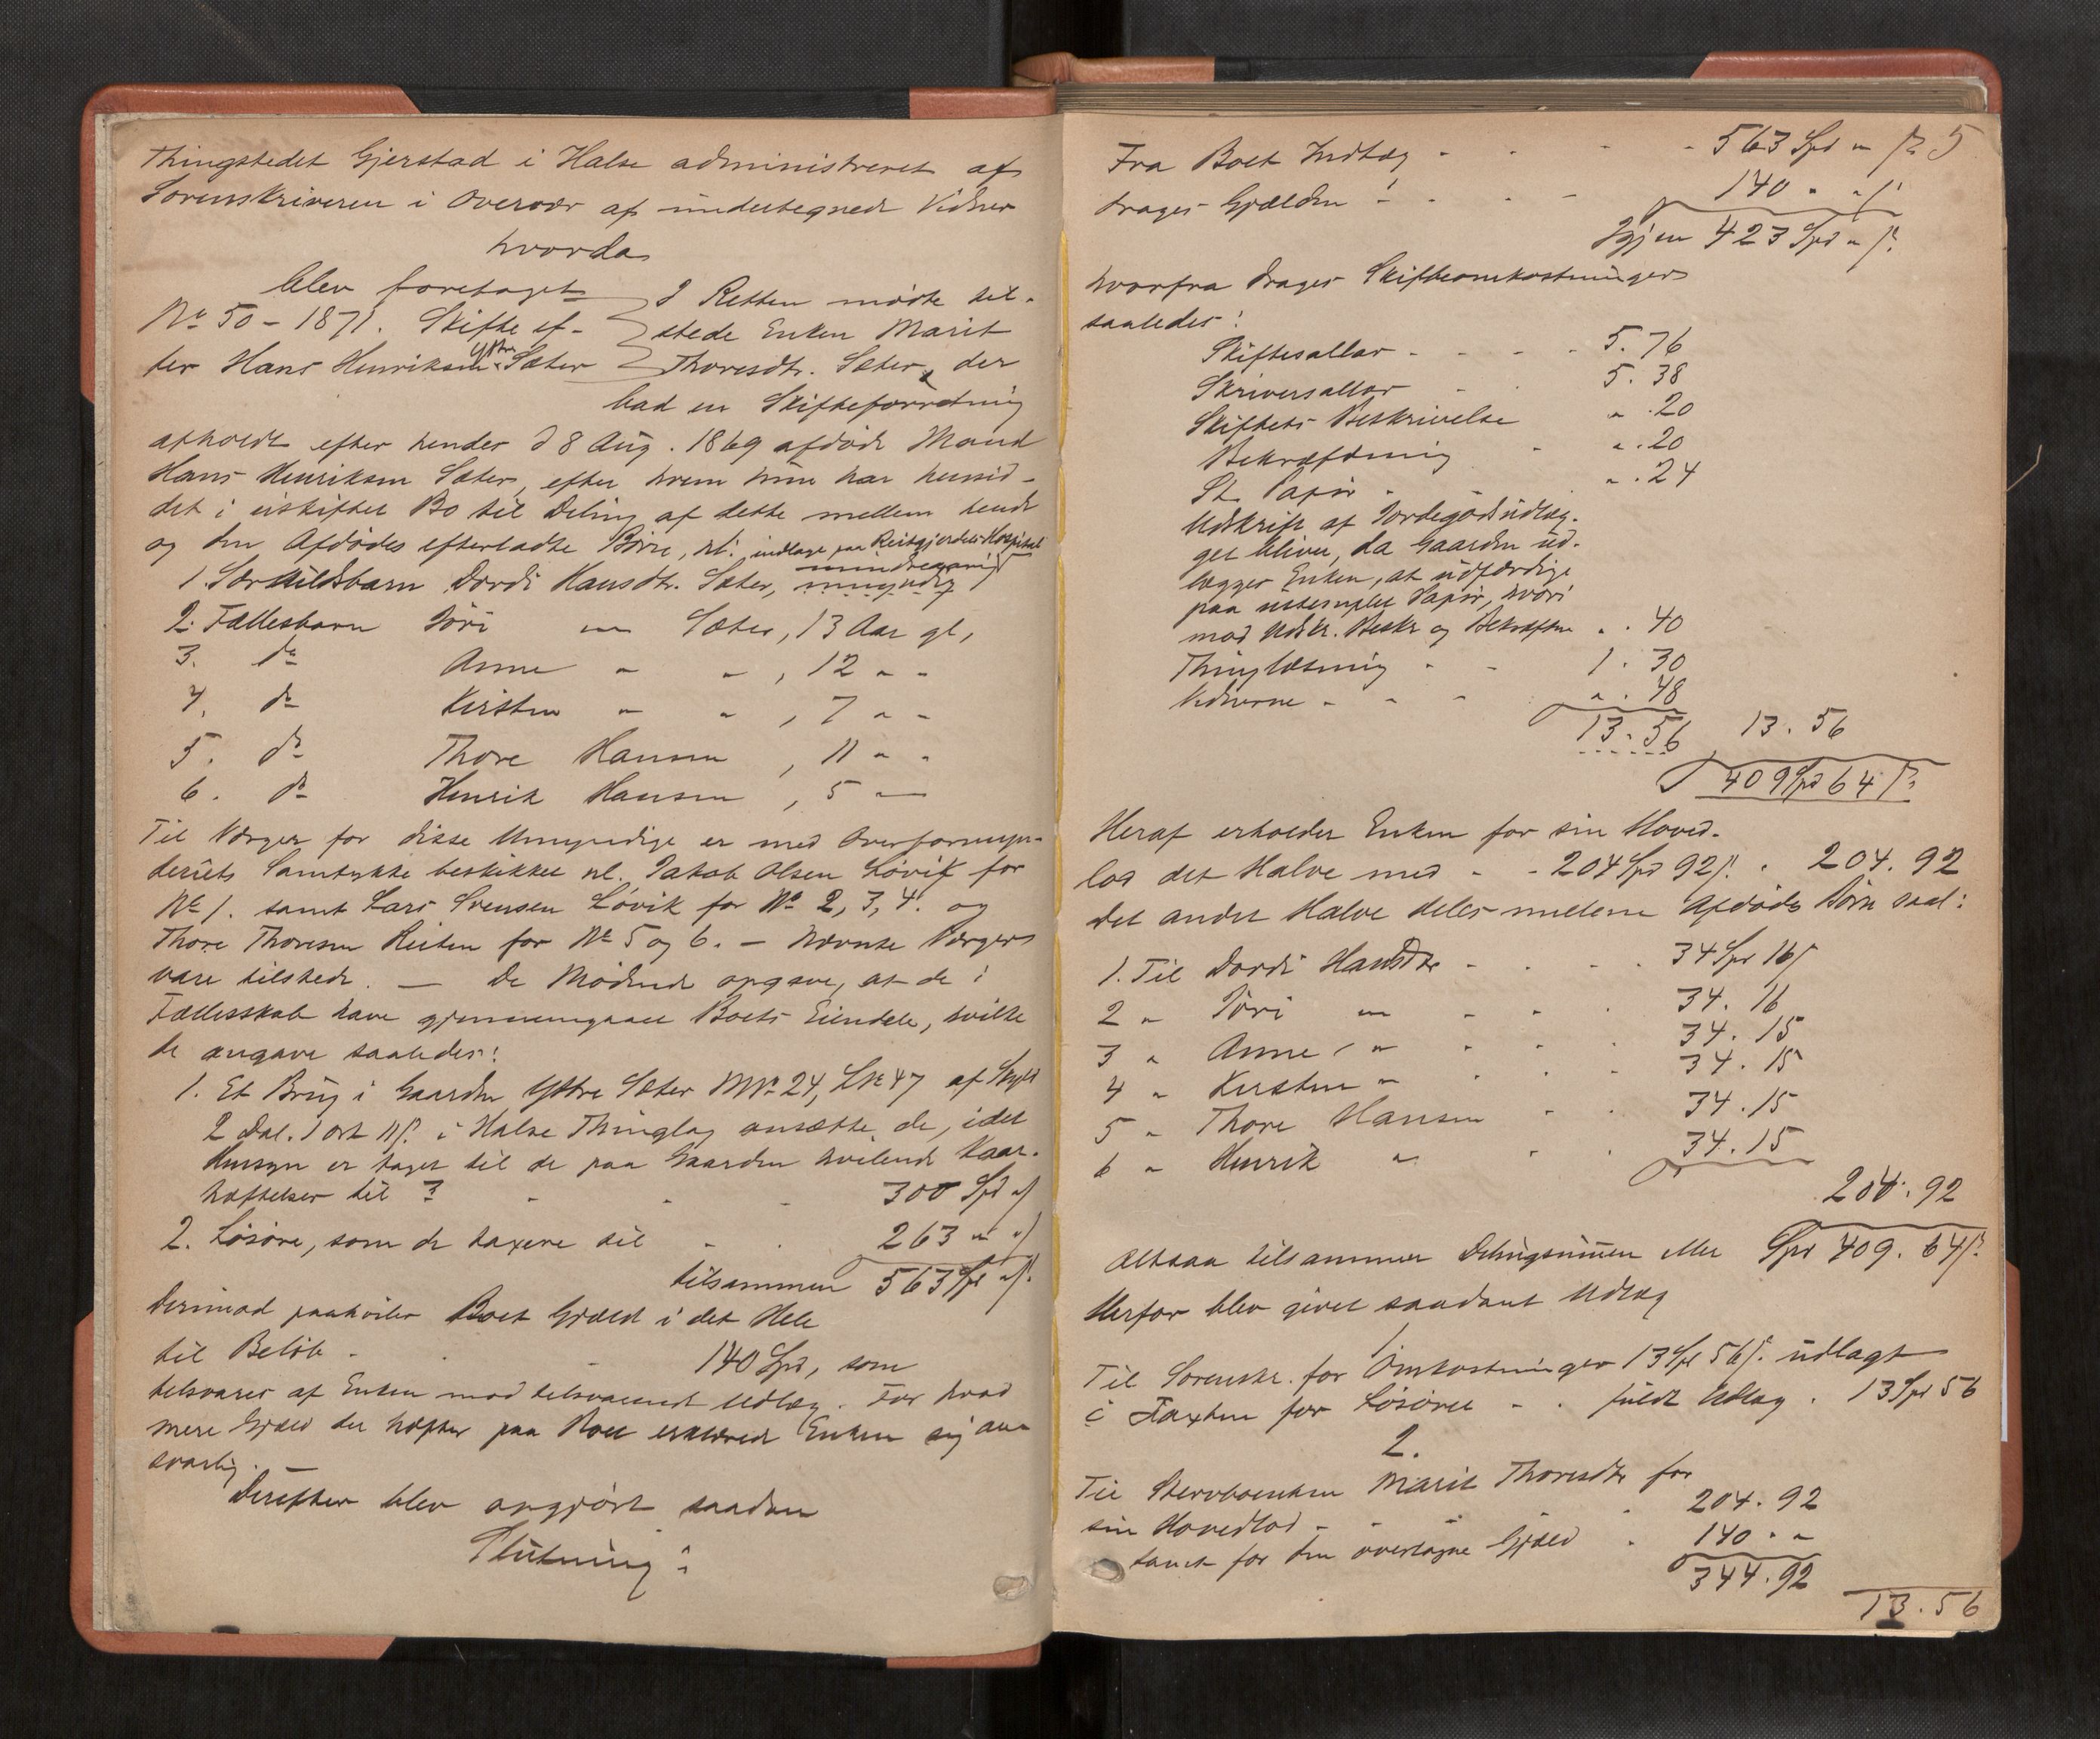 Thingstedet Gjerstad i Halse administreret af
Sorenskriveren i Overvær af undertegnede Vidner
hvorda
blev foretaget
No 50 - 1871. Skifte ef-
ter Hans Henriksen Yttre Sæter
I Retten mødte til-
stede Enken Marit
Thoresdtr. Sæter, der
bad en Skifteforretning
afholdt efter hendes d 8 Aug. 1869 afdøde Mand
Hans Henriksen Sæter, efter hvem hun har hensid-
det i uskiftet Bo til Deling af dette mellem hende
og den Afdødes efterladte Børn, nl. indlagt paa Reitgjerdets Hospital
1. Særkuldsbarn Dordi Hansdtr. Sæter, umyndig mindreaarig
2. Fællesbarn Jöri " Sæter, 13 Aar gl,
3. do Anne " " , 12 " "
4. do Kirsten " " , 7 " "
5. do Thore Hansen , 11 " "
6. do Henrik Hansen , 5 "
Til Værger for disse Umyndige er med Overformyn-
deriets Samtykke beskikket nl. Jakob Olsen Løvik for
No 1. samt Lars Svensen Løvik for No 2, 3, 4. og
Thore Thoresen Reiten for No 5 og 6. - Nævnte Værger
vare tilstede. — De Mødende opgave, at de i
Fællesskab have gjennemgaaet Boets Eiendele, hvilke
de angave saaledes:
1. Et Brug i Gaarden Yttre Sæter MNo 24, LNo 47 af Skyld
2 Dal. 1 ort 11 s. i Halse Thinglag ansætte de, idet
Hensyn er taget til de paa Gaarden hvilende Kaar-
hæftelser til 300 Spd " s
2. Løsøre, som de taxere til - - 263 " " s
tilsammen 563 Spd " s.
Derimod paahviler Boet Gjæld i det Hele
til Beløb - - 140 Spd, som
tilsvares af Enken mod tilsvarende Udlæg. For hvad
mere Gjæld der hæfter paa Boet erklærede Enken sig an-
svarlig.
Derefter blev opgjørt saadan
Slutning:
5
Fra Boets Indtæg - - - - 563 Spd " s
drages Gjælden - - - - 140 " " s
Igjen 423 Spd " s.
hvorfra drages Skifteomkostninger
saaledes:
Skiftesallar - - - - 5. 76
Skriversallar - - 5. 38
Skiftets Beskrivelse ". 20
Bekræftning - ". 20
St. Papir - - ". 24
Udskrift af Jordegodsudlæg-
get bliver, da Gaarden ud-
lægges Enken, at udfærdige
paa ustemplet Papir, hvori
mod Udskr. Beskr og Bekræftn " . 40
Thinglæsning - - 1. 30
Vidnerne - - - ". 48
13. 56 13. 56
409 Spd 64 s
Heraf erholder Enken for sin Hoved-
lod det Halve med - - 204 Spd 92 s. - 204. 92
det andet Halve deles mellem Afdødes Børn saal:
1. Til Dordi Hansdtr - - - 34 Spd 16 s
2 " Jöri " - - - 34. 16
3 " Anne " - - - 34. 15
4 " Kirsten " - - - 34. 15
5 " Thore Hansen - - 34. 15
6 " Henrik " - - 34. 15
204. 92
Altsaa tilsammen Delingsummen eller Spd 409. 64 s.
Herfor blev givet saadant Udlæg
1
Til Sorenskr. for Omkostninger 13 Spd 56 s. udlagt
i Taxten for Løsøret - - fuldt Udlæg. 13 Spd 56
2.
Til Stervboenken Marit Thoresdtr for
sin Hovedlod - - - - 204. 92
samt for den overtagne Gjæld - 140 " "
344. 92
13. 56